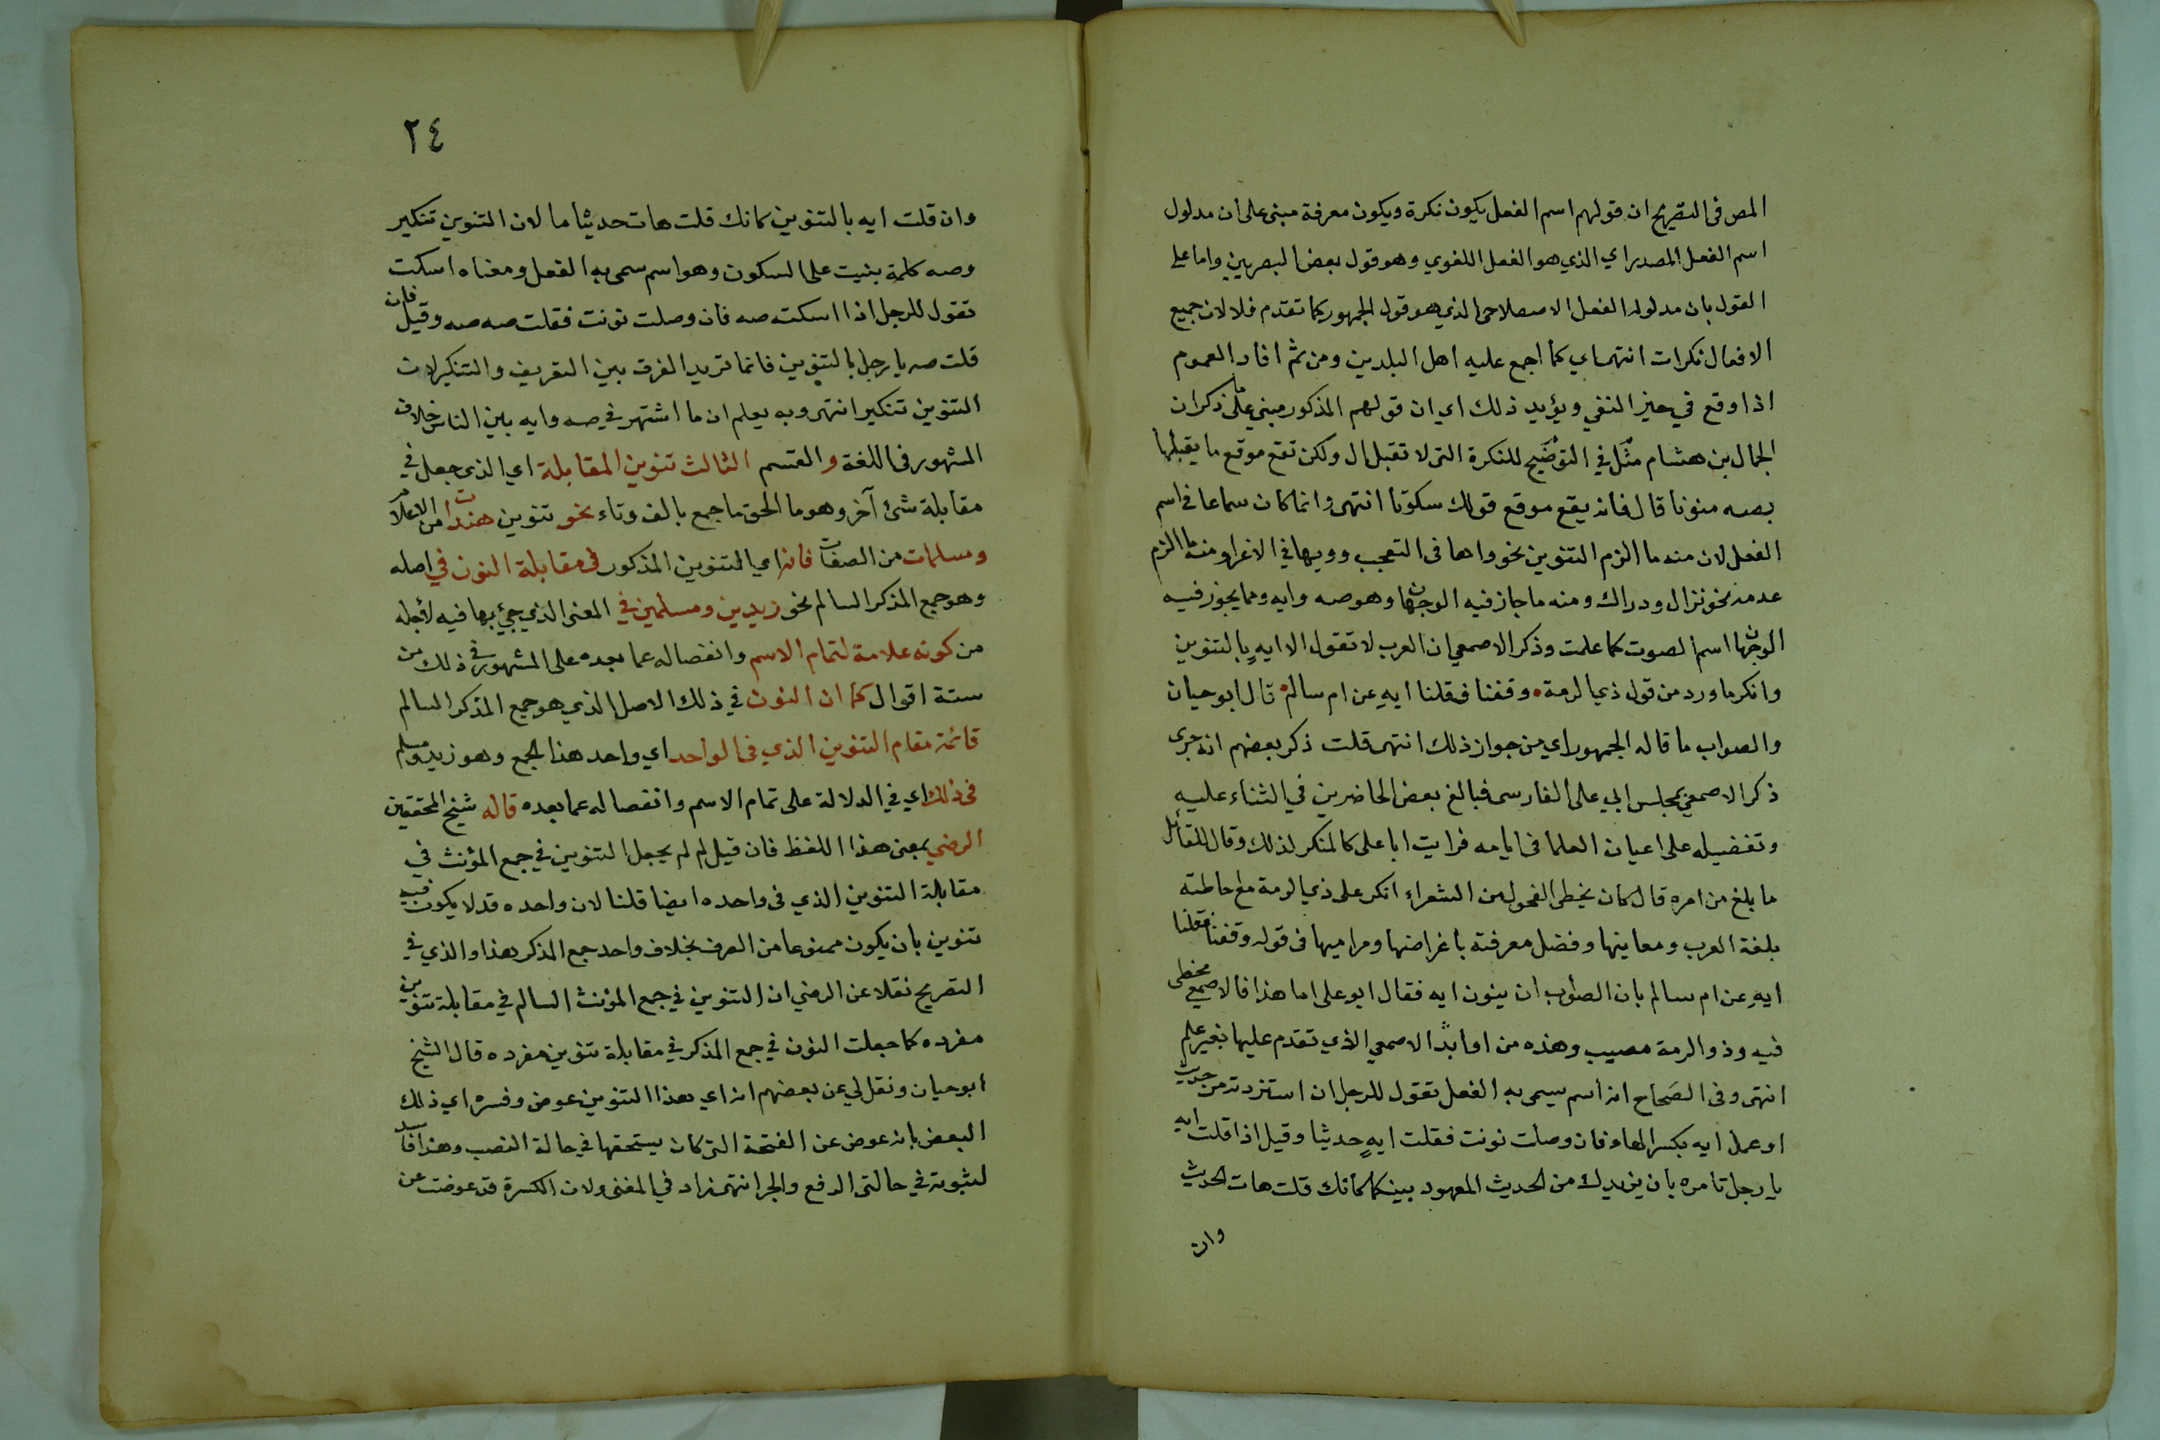 المص فى التصريح ان قولهم اسم الفعل يكون نكرة ويكون معرفة مبنى على ان مدلول
اسم الفعل المصدر اي الذي هو الفعل اللغوي وهو قول بعض البصريين واما على
القول بان مدلوله الفعل الاصطلاحى الذي هو قول الجمهور كما تقدم فلا لان جميع
الافعال نكرات انتهى اي كما اجمع عليه اهل البلدين ومن ثم افاد العموم
اذا وقع في حيز النفي ويؤيد ذلك اي ان قولهم المذكور مبني على ما ذكر ان
الجمال بن هشام مثل في التوضيح للنكرة التى لا تقبل ال ولكن تقع موقع ما يقبلها
بصه منونا قال فانه يقع موقع قولك سكوتا انتهى وانما كان سماعا فى اسم
الفعل لان منه ما الزم التنوين نحو واها فى التعجب وويها في الاغراء ومنه ما الزم
عدمه نحو نزال ودراك ومنه ما جاز فيه الوجهان وهو صه وايه ومما يجوز فيه
الوجهان اسم الصوت كما علمت وذكر الاصمعي ان العرب لا تقول الا ايهٍ بالتنوين
وانكر ما ورد من قول ذي الرمة ه وقفنا فقلنا ايهِ عن ام سالم ه قال ابو حيان
والصواب ما قاله الجمهور اي من جواز ذلك انتهى قلت ذكر بعضهم انه جرى
ذكر الاصمعي بمجلس ابي على الفارسى فبالغ بعض الحاضرين في الثناء عليه
وتفضيله على اعيان العلما فى ايامه فرايت ابا على كالمنكر لذلك وقال للقائل
ما بلغ من امره قال كان يخطى الفحول من الشعراء انكر على ذي الرمة مع احاطته
بلغة العرب ومعانيها وفضل معرفته باغراضها ومراميها فى قوله وقفنا فقلنا
ايهِ عن ام سالم بان الصواب ان ينون ايه فقال ابو على اما هذا فالاصمعي مخطى
فيه وذو الرمة مصيب وهذه من اوابد الاصمعي الذي تقدم عليها بغير علم
انتهى وفى الصَحاح انه اسم سمى به الفعل تقول للرجل ان استزدته من حديث
او عمل ايه بكسر الهاء فان وصلت نونت فقلت ايهٍ حدثنا وقيل اذا قلت ايه
يا رجل تامره بان يزيدك من الحديث المعهود بينكما كانك قلت هات الحديث
وان
٢٤
وان قلت ايه بالتنوين كانك قلت هات حديثا ما لان التنوين تنكير
وصه كلمة بنيت على السكون وهو اسم سمى به الفعل ومعناه اسكت
تقول للرجل اذا اسكته صه فان وصلت نونت فقلت صه صه وقيل فان
قلت صه يا رجل بالتنوين فانما تريد الفرق بين التعريف والتنكير لان
التنوين تنكير انتهى وبه يعلم ان ما اشتهر في صه وايه بين الناس خلاف
المشهور فى اللغة والقسم الثالث تنوين المقابلة اي الذى جعل في
مقابلة شئ آخر وهو ما الحق ما جمع بالف وتاء نحو تنوين هندات من الاعلام
ومسلمات من الصفات فانه اي التنوين المذكور فى مقابلة النون في اصله
وهو جمع المذكر السالم نحو زيدين ومسلمين في المعنى الذي جيئ بها فيه لأجله
من كونه علامة لتمام الاسم وانفصاله عما بعده على المشهور فى ذلك من
ستة اقوال كما ان النون في ذلك الاصل الذي هو جمع المذكر السالم
قائمة مقام التنوين الذي فى الواحد اي واحد هذا الجمع وهو زيد ومسلم
فى ذلك اي في الدلالة على تمام الاسم وانفصاله عما بعده قاله شيخ المحققين
الرضي بمعنى هذا اللفظ فان قيل لم لم يجعل التنوين في جمع المؤنث في
مقابلة التنوين الذي فى واحده ايضا قلنا لان واحده قد لا يكون فيه
تنوين بان يكون ممنوعا من الصرف بخلاف واحد جمع المذكر هذا والذي في
التصريح نقلا عن الرضي ان التنوين في جمع المؤنث السالم في مقابلة تنوين
مفرده كما جعلت النون في جمع المذكر في مقابلة تنوين مفرده قال الشيخ
ابو حيان ونقل لي عن بعضهم انه اي هذا التنوين عوض وفسره اي ذلك
البعض بانه عوض عن الفتحة التى كان يستحقها في حالة النصب وهذا فاسد
لثبوته في حالتى الرفع والجر انتهى زاد في المغنى ولان الكسرة قد عوضت عن